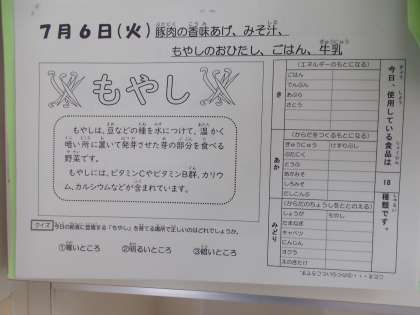 7月6日(火) 豚肉の香味あげ、みそ汁、
もやしのおひたし、ごはん、牛乳
もやし
もやしは、豆などの種を水につけて、温かく
暗い所に置いて発芽させた芽の部分を食べる
野菜です。
もやしには、ビタミンCやビタミンB群、カリウ
ム、カルシウムなどが含まれています。
クイズ 今日の給食に登場する「もやし」を育てる場所で正しいのはどれでしょうか。
①寒いところ ②明るいところ ③暗いところ
今日、使用している食品は
18
種類です。
き
(エネルギーのもとになる)
ごはん
でんぷん
あぶら
さとう
あか
(からだをつくるもとになる)
ぎゅうにゅう けずりぶし
ぶたにく
とうふ
あかみそ
しろみそ
だしこんぶ
みどり
(からだのちょうしをととのえる)
しょうが もやし
たまねぎ
キャベツ
にんじん
えのきたけ